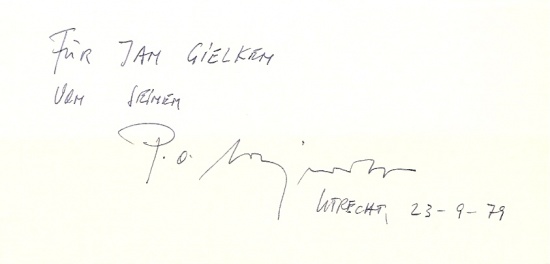 Für Jan Gielken
von seinem
P.o.
Utrecht, 23-9-79